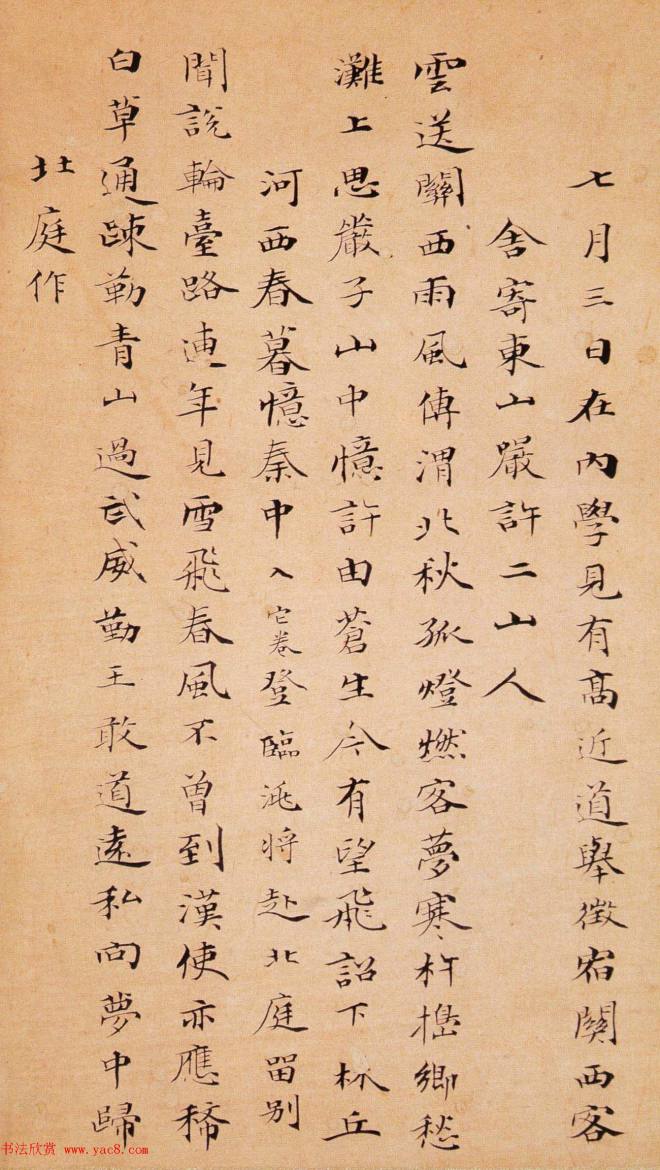 七月三日在內學見有髙近道舉徵宿關西客
舍寄東山嚴許二山人
雲送關西雨風傳渭北秋孤燈燃客夢寒杵搗鄉愁
灘上思嚴子山中憶許由蒼生今有望飛詔下林丘
河西春暮憶秦中入它卷登臨洮將赴北庭留別
聞說輪臺路連年見雪飛春風不曾到漢使亦應稀
白草通疎勒青山過武威勤王敢道遠私向夢中歸
北庭作
书法欣赏 www.yac8.com